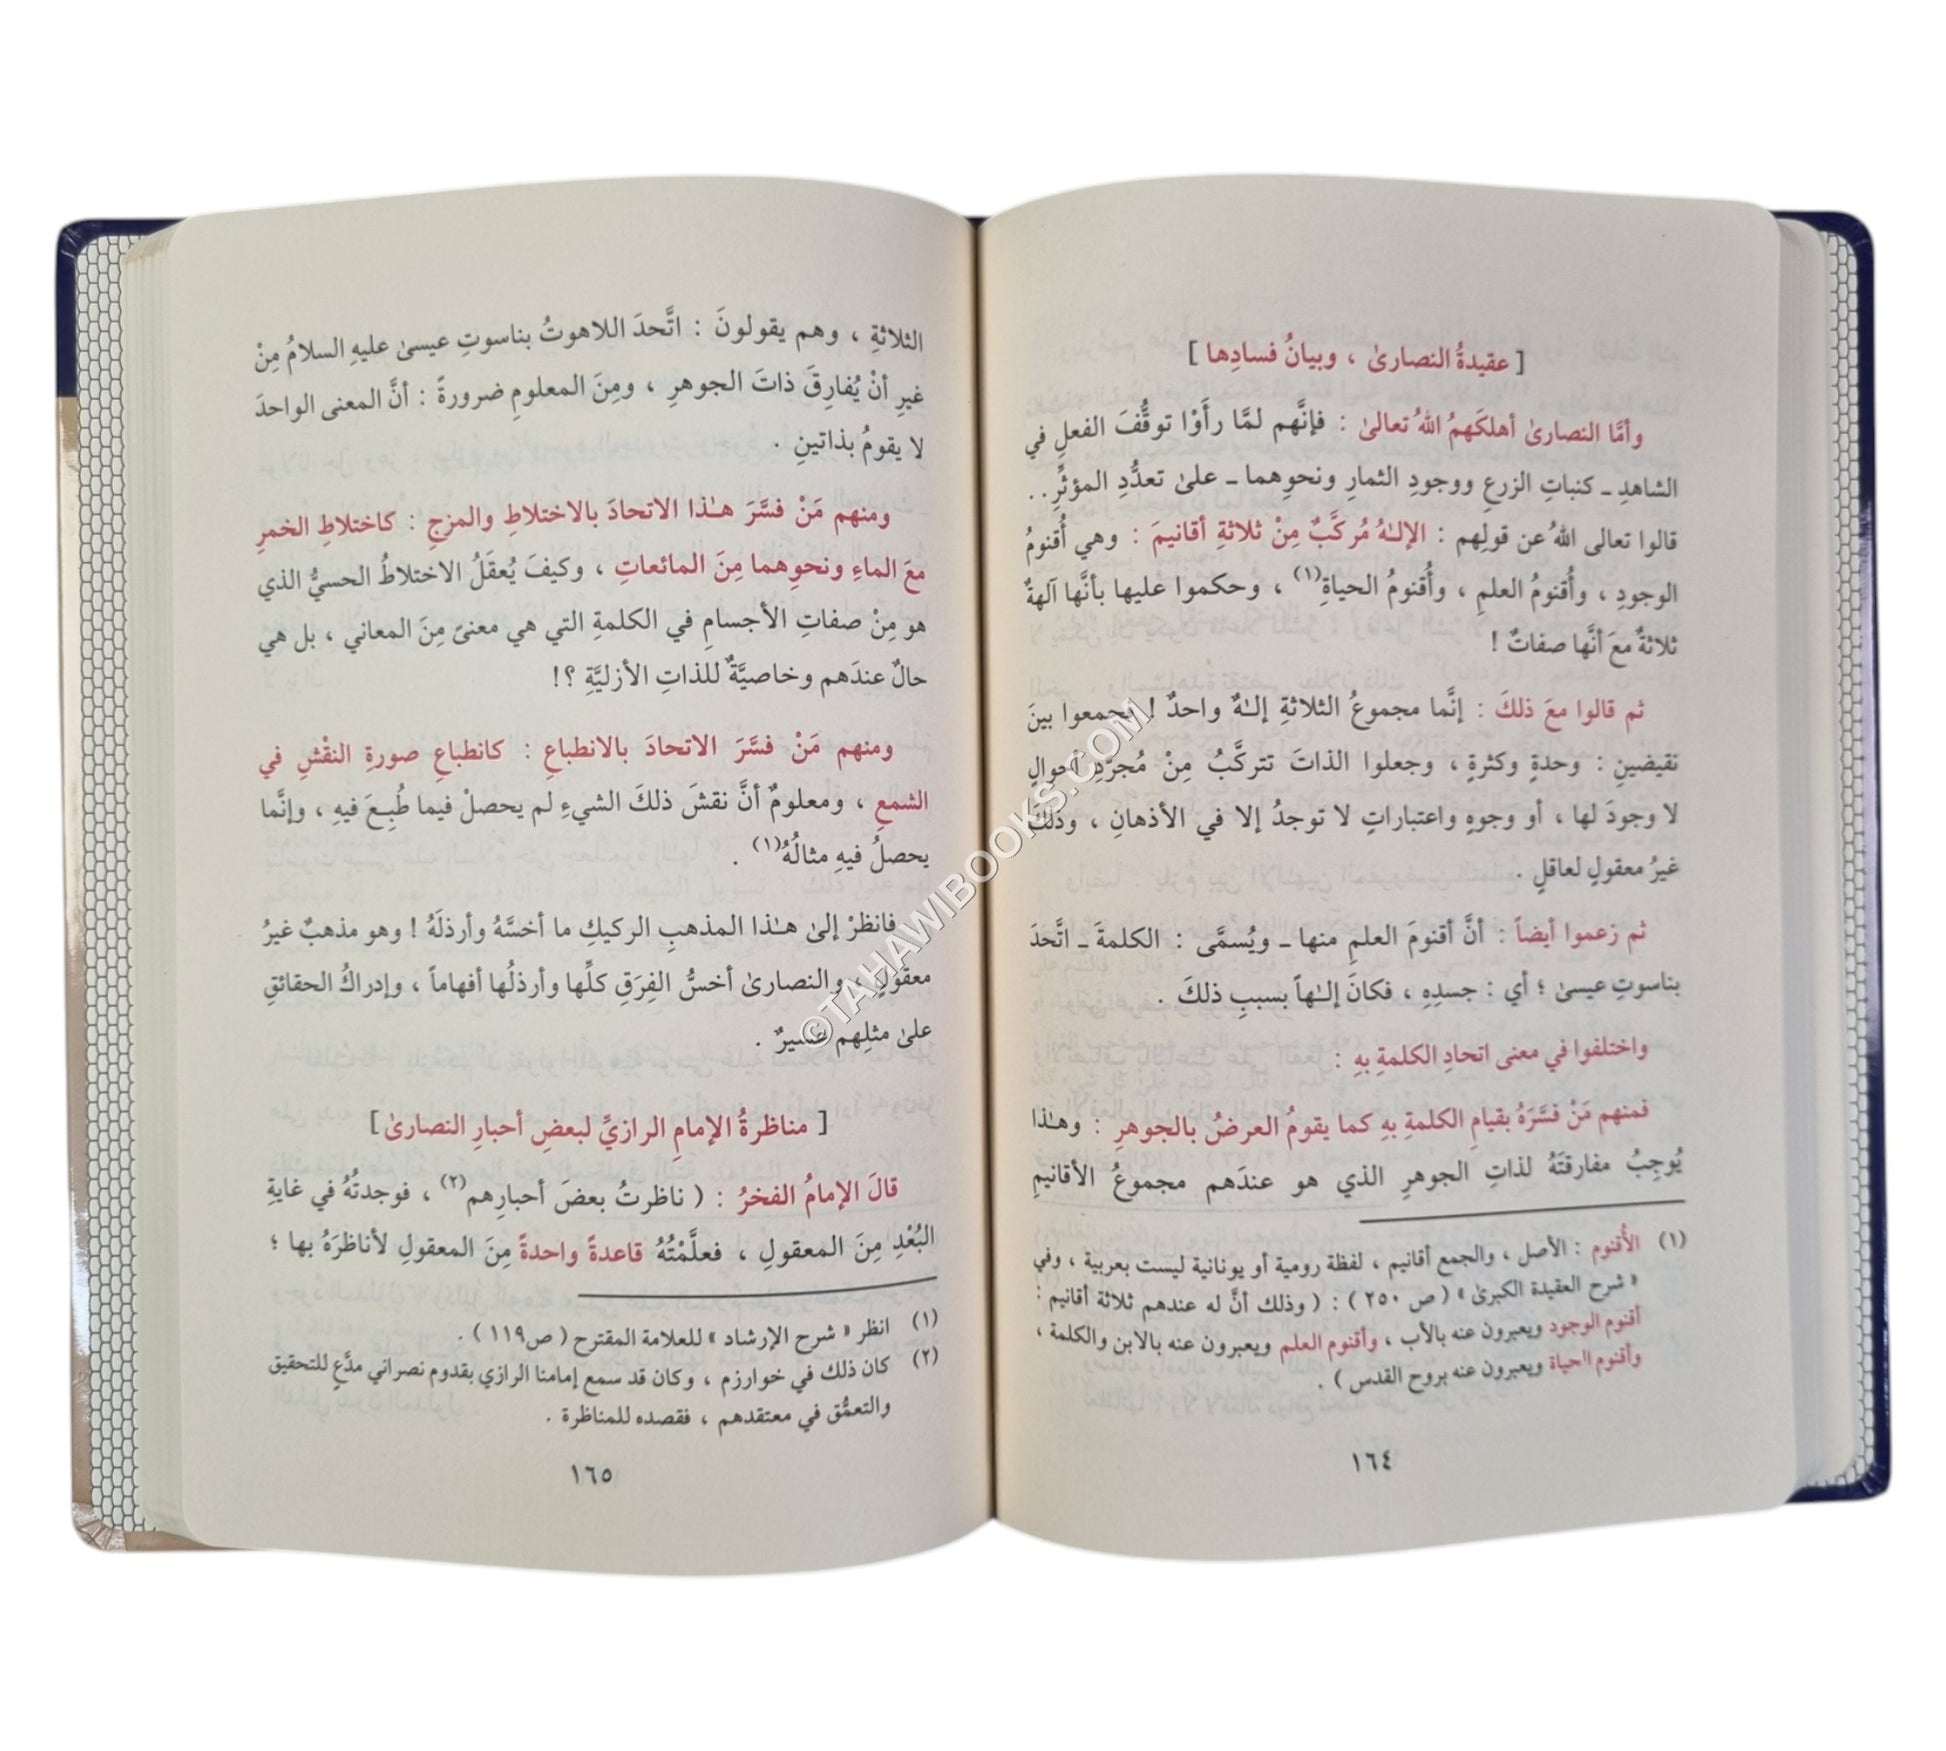 [ عقيدةُ النصارىٰ ، وبيانُ فسادِها ]
وأمَّا النصارىٰ أهلكَهمُ اللهُ تعالىٰ : فإنَّهم لمَّا رأَوْا توقُّفَ الفعلِ في
الشاهدِ ـ كنباتِ الزرعِ ووجودِ الثمارِ ونحوِهما ـ علىٰ تعدُّدِ المؤثِّرِ . .
قالوا تعالى اللهُ عن قولِهم : الإلـٰهُ مُركَّبٌ مِنْ ثلاثةِ أقانيمَ : وهي أُقنومُ
الوجودِ ، وأُقنومُ العلمِ ، وأُقنومُ الحياةِ(١) ، وحكموا عليها بأنَّها آلهةٌ
ثلاثةٌ معَ أنَّها صفاتٌ !
ثم قالوا معَ ذلكَ : إنَّما مجموعُ الثلاثةِ إلـٰهٌ واحدٌ ! فجمعوا بينَ
نقيضينِ : وحدةٍ وكثرةٍ ، وجعلوا الذاتَ تتركَّبُ مِنْ مُجرَّدِ أحوالٍ
لا وجودَ لها ، أو وجوهٍ واعتباراتٍ لا توجدُ إلا في الأذهانِ ، وذلكَ
غيرُ معقولٍ لعاقلٍ .
ثم زعموا أيضاً : أنَّ أقنومَ العلمِ منها ـ ويُسمَّى : الكلمةَ ـ اتَّحدَ
بناسوتِ عيسىٰ ؛ أي : جسدِهِ ، فكانَ إلـٰهاً بسببِ ذلكَ .
واختلفوا في معنى اتحادِ الكلمةِ بهِ :
فمنهم مَنْ فسَّرَهُ بقيامِ الكلمةِ بهِ كما يقومُ العرضُ بالجوهرِ : وهـٰذا
يُوجِبُ مفارقتَهُ لذاتِ الجوهرِ الذي هو عندَهم مجموعُ الأقانيمِ
(١) الأُقنوم : الأصل ، والجمع أقانيم ، لفظة رومية أو يونانية ليست بعربية ، وفي
« شرح العقيدة الكبرىٰ » ( ص ٢٥٠ ) : ( وذلك أنَّ له عندهم ثلاثة أقانيم :
أقنوم الوجود ويعبرون عنه بالأب ، وأقنوم العلم ويعبرون عنه بالابن والكلمة ،
وأقنوم الحياة ويعبرون عنه بروح القدس ) .
١٦٤
الثلاثةِ ، وهم يقولونَ : اتَّحدَ اللاهوتُ بناسوتِ عيسىٰ عليهِ السلامُ مِنْ
غيرِ أنْ يُفارِقَ ذاتَ الجوهرِ ، ومِنَ المعلومِ ضرورةً : أنَّ المعنى الواحدَ
لا يقومُ بذاتينِ .
ومنهم مَنْ فسَّرَ هـٰذا الاتحادَ بالاختلاطِ والمزجِ : كاختلاطِ الخمرِ
معَ الماءِ ونحوِهما مِنَ المائعاتِ ، وكيفَ يُعقَلُ الاختلاطُ الحسيُّ الذي
هو مِنْ صفاتِ الأجسامِ في الكلمةِ التي هي معنىً مِنَ المعاني ، بل هي
حالٌ عندَهم وخاصيَّةٌ للذاتِ الأزليَّةِ ؟!
ومنهم مَنْ فسَّرَ الاتحادَ بالانطباعِ : كانطباعِ صورةِ النقْشِ في
الشمعِ ، ومعلومٌ أنَّ نقشَ ذلكَ الشيءِ لم يحصلْ فيما طُبِعَ فيهِ ، وإنَّما
يحصلُ فيهِ مثالُهُ(١) .
فانظرْ إلىٰ هـٰذا المذهبِ الركيكِ ما أخسَّهُ وأرذلَهُ ! وهو مذهبٌ غيرُ
معقولٍ ، والنصارىٰ أخسُّ الفِرَقِ كلِّها وأرذلُها أفهاماً ، وإدراكُ الحقائقِ
علىٰ مثلِهم عسيرٌ .
[ مناظرةُ الإمامِ الرازيِّ لبعضِ أحبارِ النصارىٰ ]
قالَ الإمامُ الفخرُ : ( ناظرتُ بعضَ أحبارِهم(٢) ، فوجدتُهُ في غايةِ
البُعْدِ مِنَ المعقولِ ، فعلَّمْتُهُ قاعدةً واحدةً مِنَ المعقولِ لأناظرَهُ بها ؛
(١) انظر « شرح الإرشاد » للعلامة المقترح ( ص١١٩ ) .
(٢) كان ذلك في خوارزم ، وكان قد سمع إمامنا الرازي بقدوم نصراني مدَّعٍ للتحقيق
والتعمُّق في معتقدهم ، فقصده للمناظرة .
١٦٥
©TAHAWIBOOKS.COM